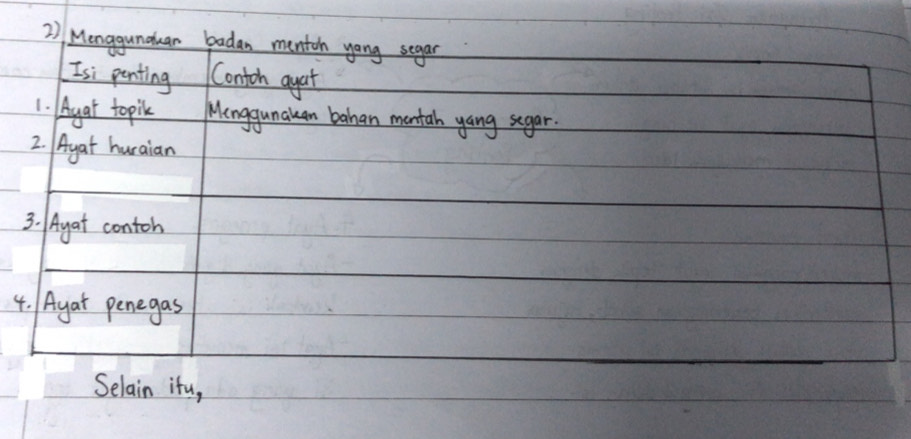 2) Menggunakan badan mentah yang segar
Isi penting Contoh ayat
1. Ayat topik Menggunakan bahan mentah yang segar.
2. Ayat huraian
3. Ayat contoh
4. Ayat penegas
Selain itu,